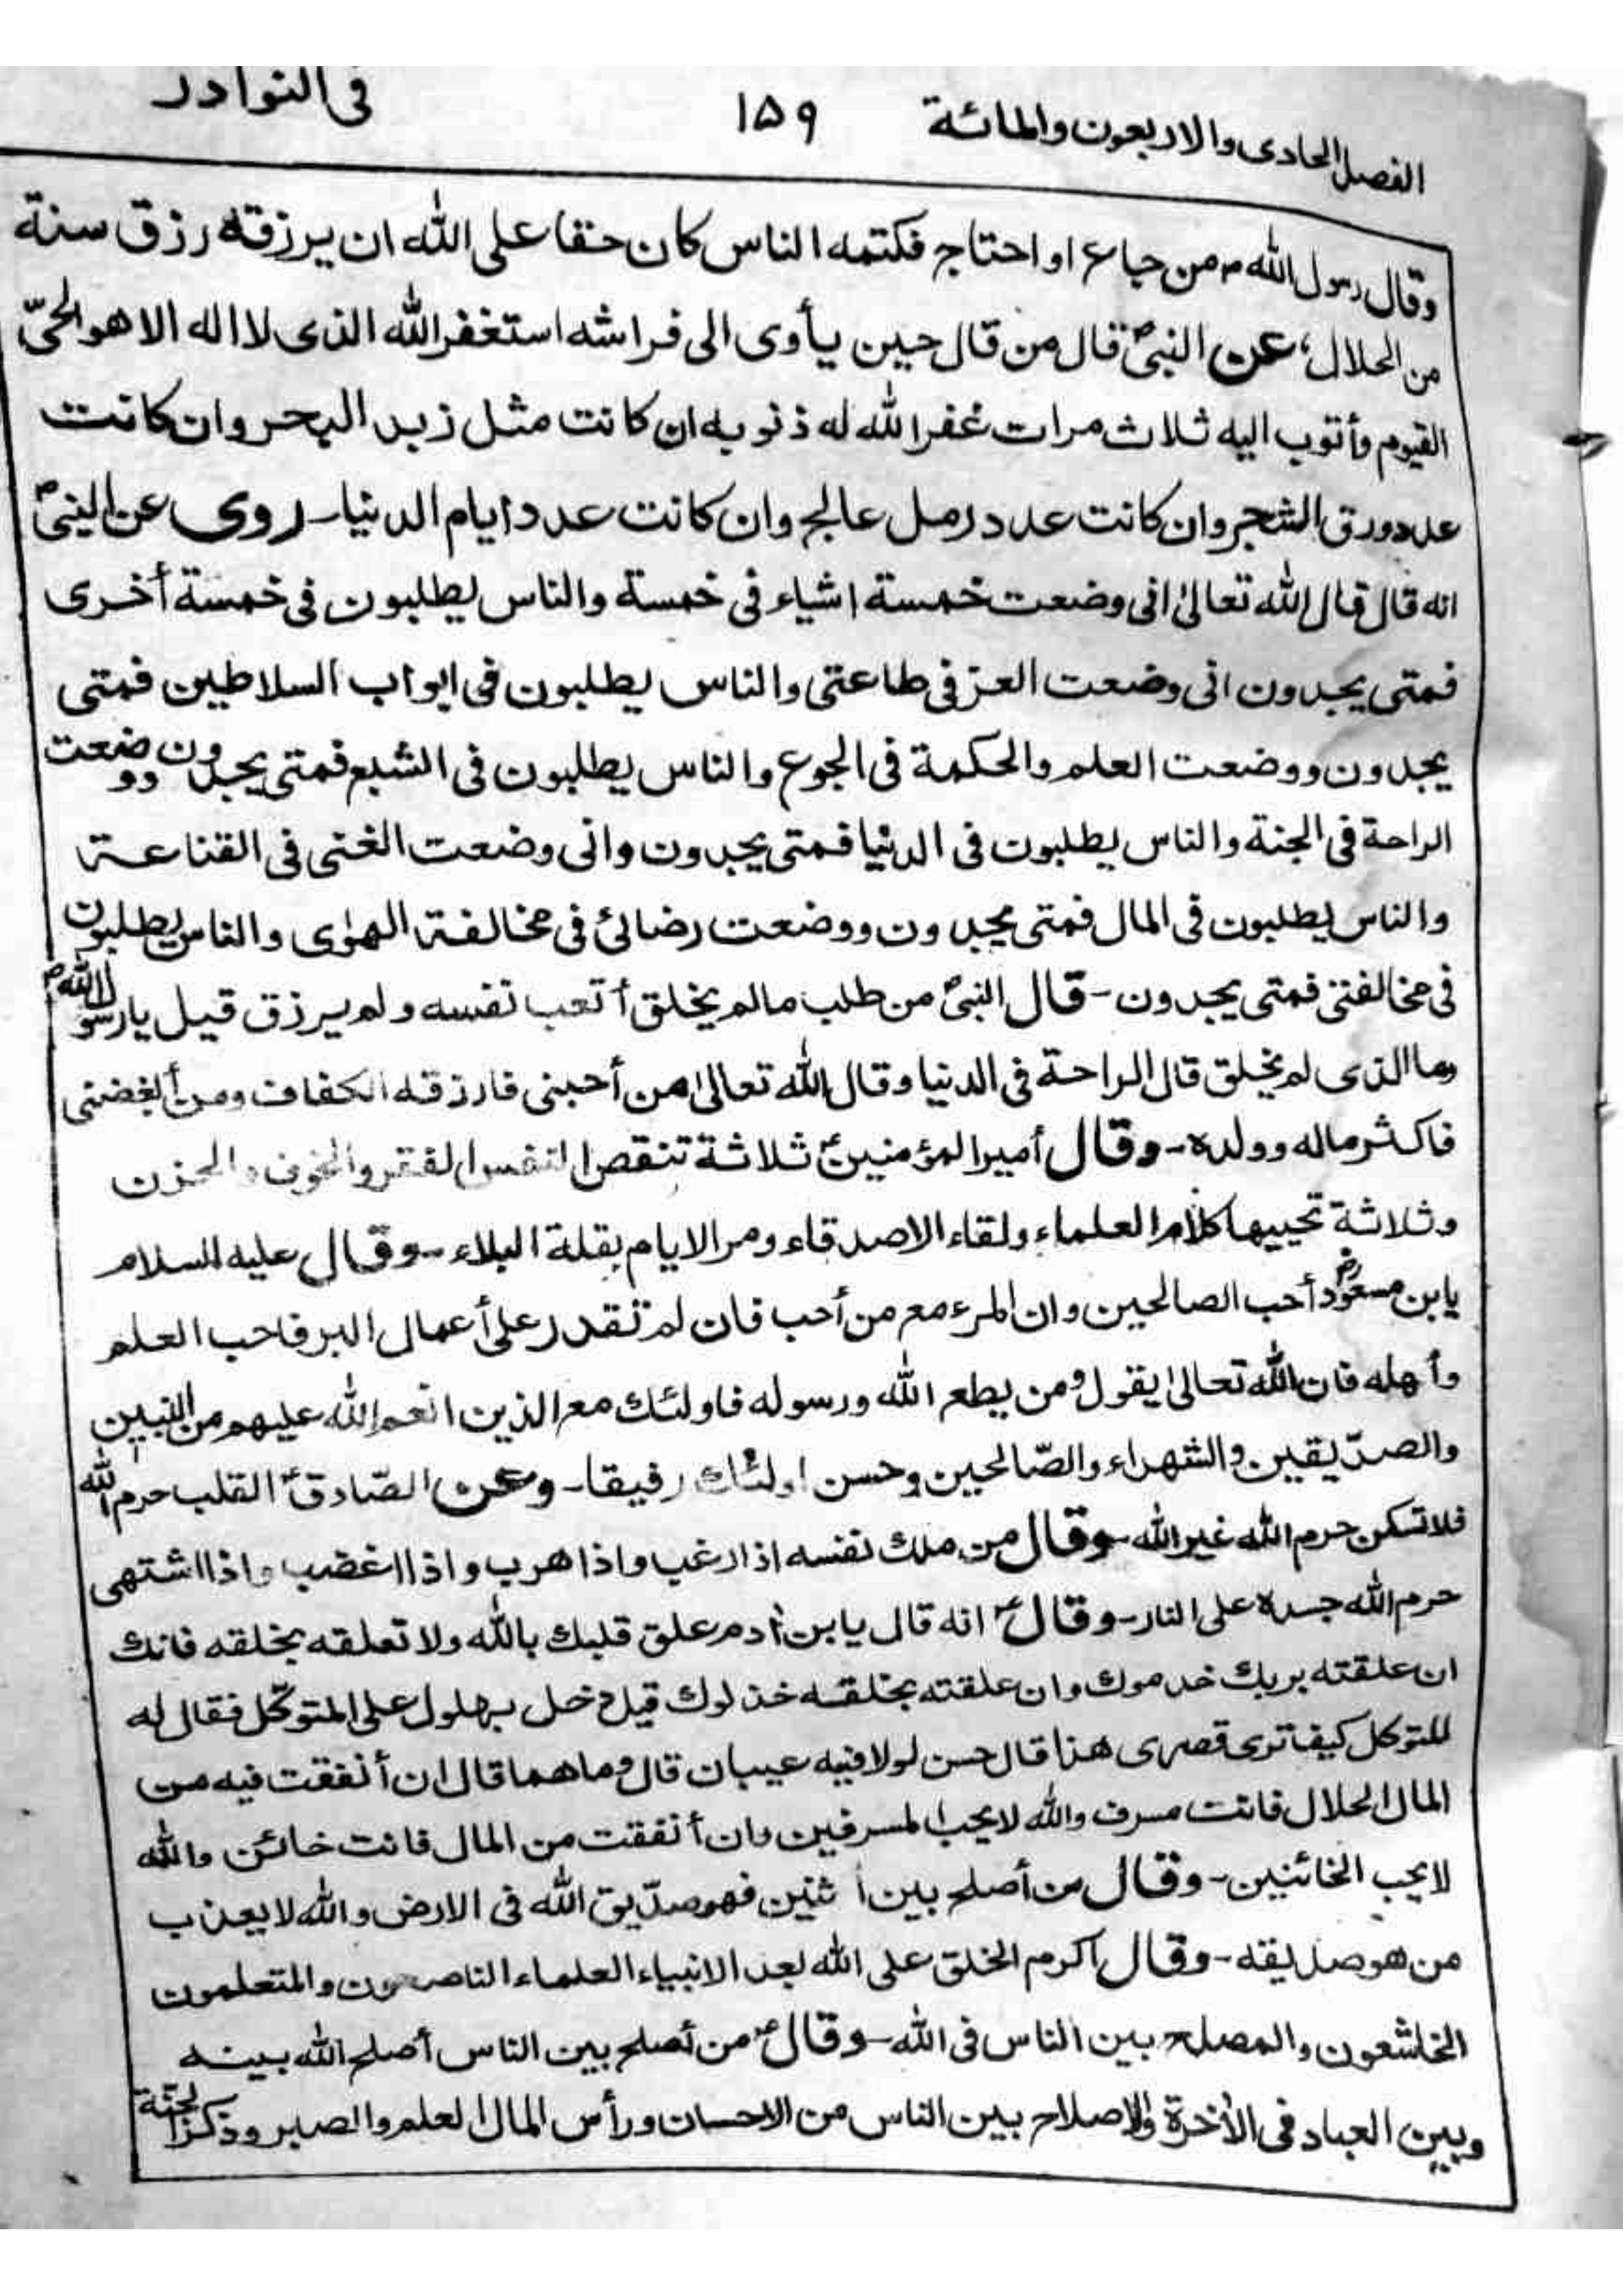 الفصل الحادى والاربعون والمائة ١٥٩ فى النوادر
وقال رسول الله ص من جاع او احتاج فكتمه الناس كان حقا على الله ان يرزقه رزق سنة
من الحلال، عن النبىؐ قال من قال حين يأوى الى فراشه استغفر الله الذى لا اله الا هو الحىّ
القيوم وأتوب اليه ثلاث مرات غفر الله له ذنوبه ان كانت مثل زبد البحر وان كانت
عدد ورق الشجر وان كانت عدد رمل عالج وان كانت عدد ايام الدنيا ـ روى عن النبىؐ
انه قال قال الله تعالىٰ انى وضعت خمسة اشياء فى خمسة والناس يطلبون فى خمسة أخرى
فمتى يجدون انى وضعت العز فى طاعتى والناس يطلبون فى ابواب السلاطين فمتى
يجدون ووضعت العلم والحكمة فى الجوع والناس يطلبون فى الشبع فمتى يجدون ووضعت
الراحة فى الجنة والناس يطلبون فى الدنيا فمتى يجدون وانى وضعت الغنى فى القناعة
والناس يطلبون فى المال فمتى يجدون ووضعت رضائى فى مخالفة الهوٰى والناس يطلبون
فى مخالفتى فمتى يجدون ـ قال النبىؐ من طلب مالم يخلق أتعب نفسه ولم يرزق قيل يا رسول اللهؐ
وما الذى لم يخلق قال الراحة فى الدنيا وقال الله تعالىٰ من أحبنى فارزقه الكفاف ومن أبغضنى
فاكثر ماله وولده ـ وقال أمير المؤمنينؑ ثلاثة تنقص النفس الفقر والخوف والحزن
وثلاثة تحييها كلام العلماء ولقاء الاصدقاء ومر الايام بقلة البلاء ـ وقال عليه السلام
يابن مسعودؓ أحب الصالحين وان المرء مع من أحب فان لم تقدر على أعمال البر فاحب العلم
وأهله فان الله تعالىٰ يقول ومن يطع الله ورسوله فاولئك مع الذين انعم الله عليهم من النبيين
والصدّيقين والشهراء والصّالحين وحسن اولئك رفيقا ـ وعن الصّادقؑ القلب حرم الله
فلا تسكن حرم الله غير الله ـ وقال من ملك نفسه اذا رغب واذا هرب واذا اغضب واذا اشتهى
حرم الله جسده على النار ـ وقالؑ انه قال يابن أدم علق قلبك بالله ولا تعلقه بخلقه فانك
ان علقته بربك خدموك وان علقته بخلقه خذلوك قيل دخل بهلول على المتوكّل فقال له
للتوكل كيف ترى قصرى هذا قال حسن لولا فيه عيبان قال وما هما قال ان أنفقت فيه من
المال الحلال فانت مسرف والله لا يحب المسرفين وان أنفقت من المال فانت خائن والله
لا يحب الخائنين ـ وقال من أصلح بين أثنين فهو صدّيق الله فى الارض والله لا يعذب
من هو صديقه ـ وقال اكرم الخلق على الله بعد الانبياء العلماء الناصحون والمتعلمون
الخاشعون والمصلح بين الناس فى الله ـ وقالؑ من أصلح بين الناس أصلح الله بينه
وبين العباد فى الأخرة والاصلاح بين الناس من الاحسان ورأس المال العلم والصبر وذكر الجنة